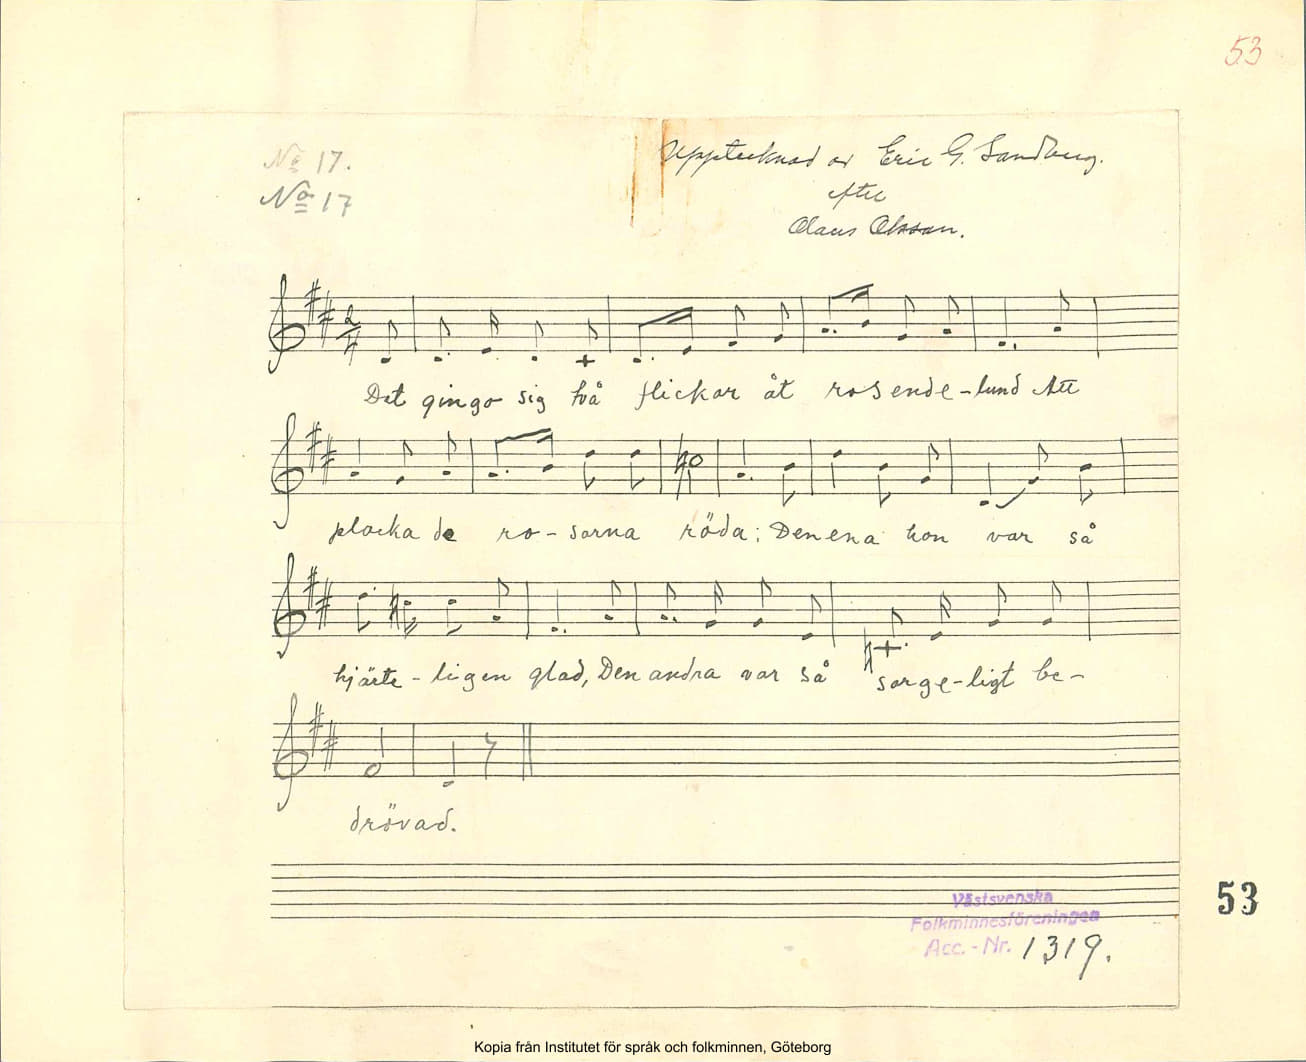 53
No 17.
No 17
Upptecknad av Eric G. Sandberg.
efter
Olaus Olsson.
2
4
Det gingo sig två flickor åt rosende-lund Att
plocka de ro-sorna röda; Den ena hon var så
hjärte-ligen glad, Den andra var så sorge-ligt be-
drövad.
53
Västsvenska
Folkminnesföreningen
Acc.-Nr. 1319.
Kopia från Institutet för språk och folkminnen, Göteborg